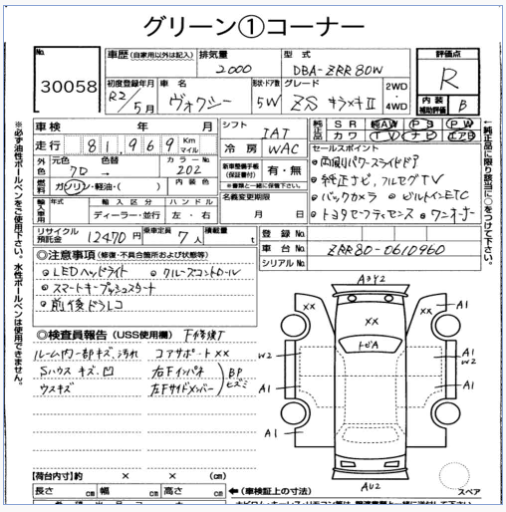 グリーン①コーナー
No. 30058
車歴 (自家用以外は記入)
排気量 2000
型式 DBA-ZRR80W
評価点 R
初度登録年月 R2/5月
車名 ヴォクシー
形状・ドア数 5W
グレード ZS キラメキⅡ
2WD・4WD
内装補助評価 B
車検 年 月
シフト IAT
純正品 SR 純AW PB PW
カワ TV ナビ エアB
走行 81,969 Km マイル
冷房 WAC
セールスポイント
外色 元色 色替 カラーNo. 7D → 202
新車整備手帳(保証書付) 有・無
※書類と一緒に保管下さい。
・両側パワースライドドア
・純正ナビ、フルセグTV
・バックカメラ ・ビルトインETC
・トヨタセーフティセンス ・ワンオーナー
燃料 ガソリン・軽油・( ) 内装色
名義変更期限 月 日
輸入車用 年式 輸入区分 ハンドル
ディーラー・並行 左・右
リサイクル預託金 12470円
乗車定員 7人
積載量 t
登録No.
車台No. ZRR80-0610960
シリアルNo.
◎注意事項 (修復・不具合箇所および状態等)
・LEDヘッドライト ・クルーズコントロール
・スマートキープッシュスタート
・前後ドラレコ
◎検査員報告 (USS使用欄)
ルーム内一部キズ、汚れ コアサポートXX
Sハウスキズ、凹 右Fインパネ
ウスキズ 左Fサイドメンバー
BP ヒズミ
A3Y2
XX XX XX
トビA
A1 A1
W2 A1 W2
A1 A1
AU2
スペア
【荷台内寸】 約 × × (cm)
長さ cm 幅 cm 高さ cm
←(車検証上の寸法)
※必ず油性ボールペンをご使用下さい。水性ボールペンは使用できません。
↑純正品に限り該当に○をつけて下さい。